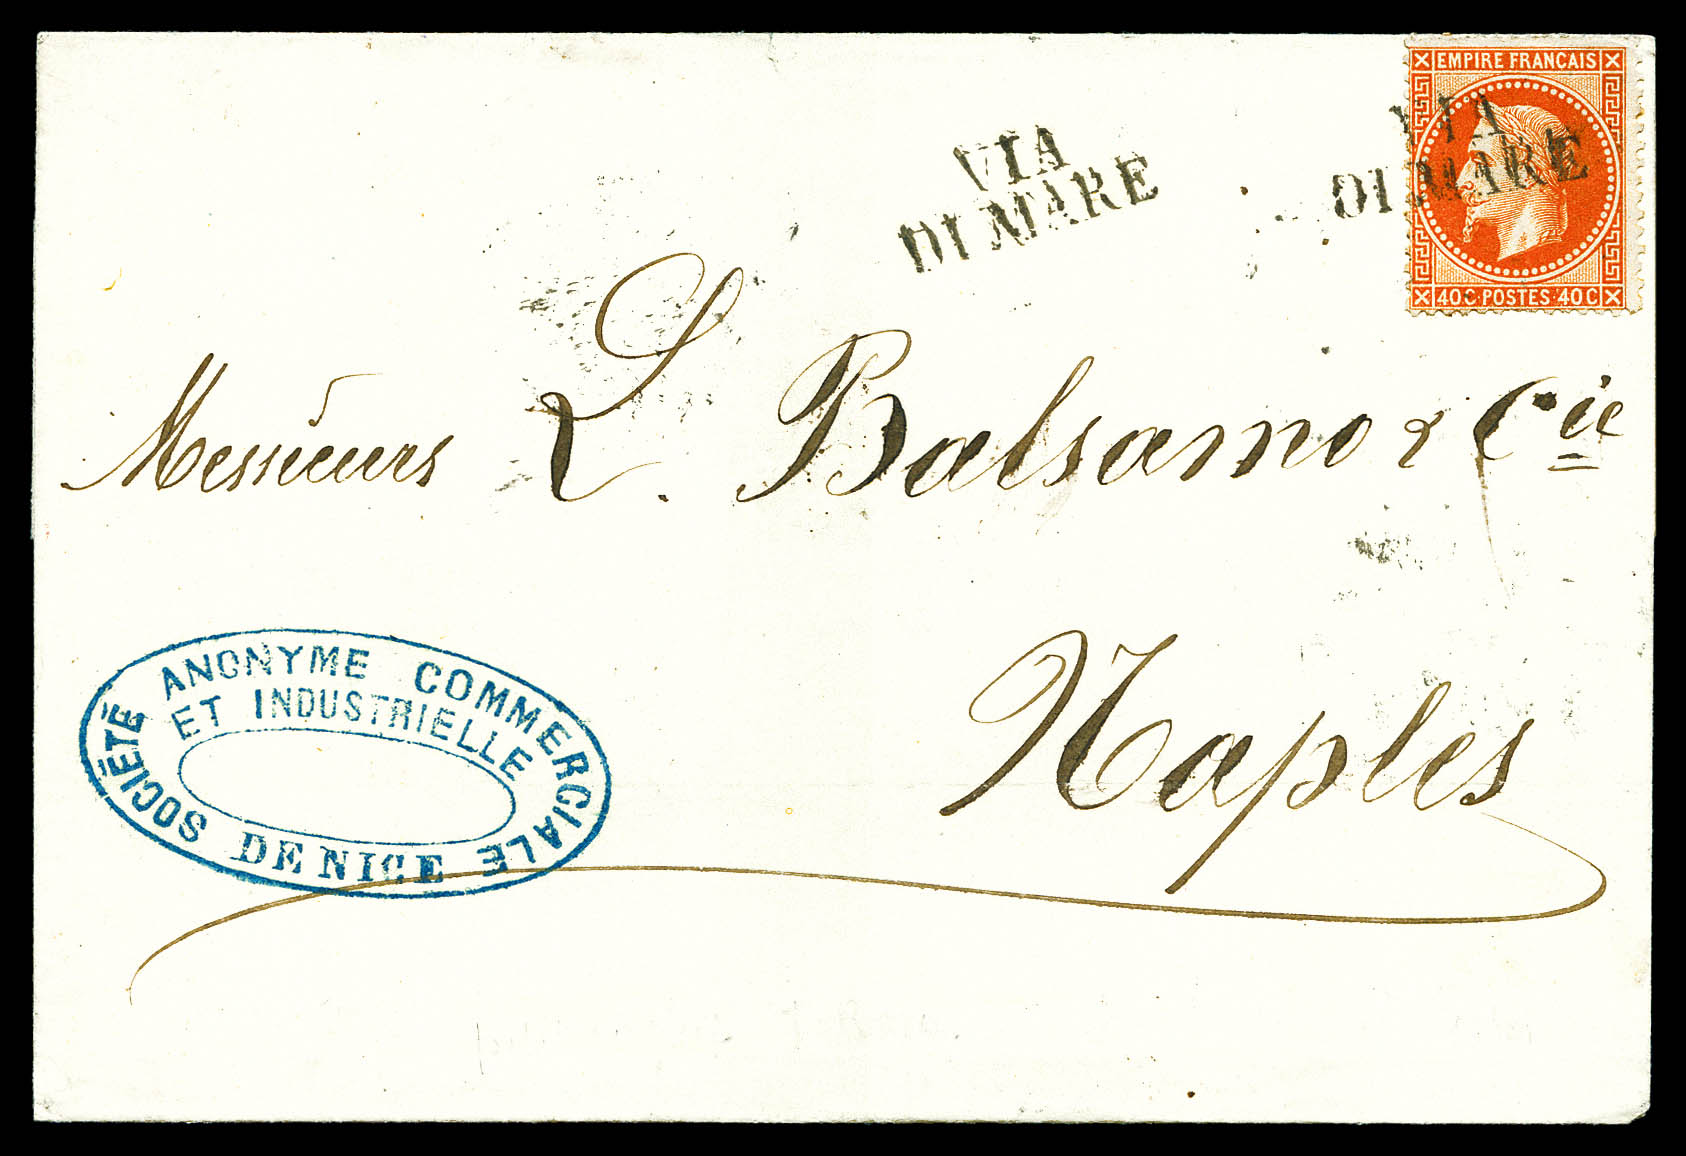 EMPIRE FRANCAIS
VIA
DI MARE
VIA
DI MARE
40C POSTES 40C
Messieurs L. Balsamo & Cie
Naples
SOCIÉTÉ ANONYME COMMERCIALE
ET INDUSTRIELLE
DE NICE